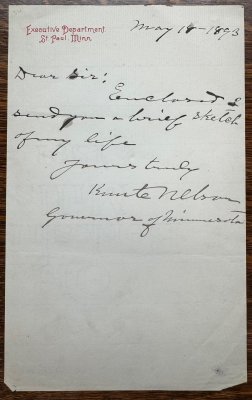 Executive Department.
St. Paul. Minn.
May 18 - 1893
Dear Sir:
Enclosed I
send you a brief sketch
of my life
Yours truly
Knute Nelson
Governor of Minnesota